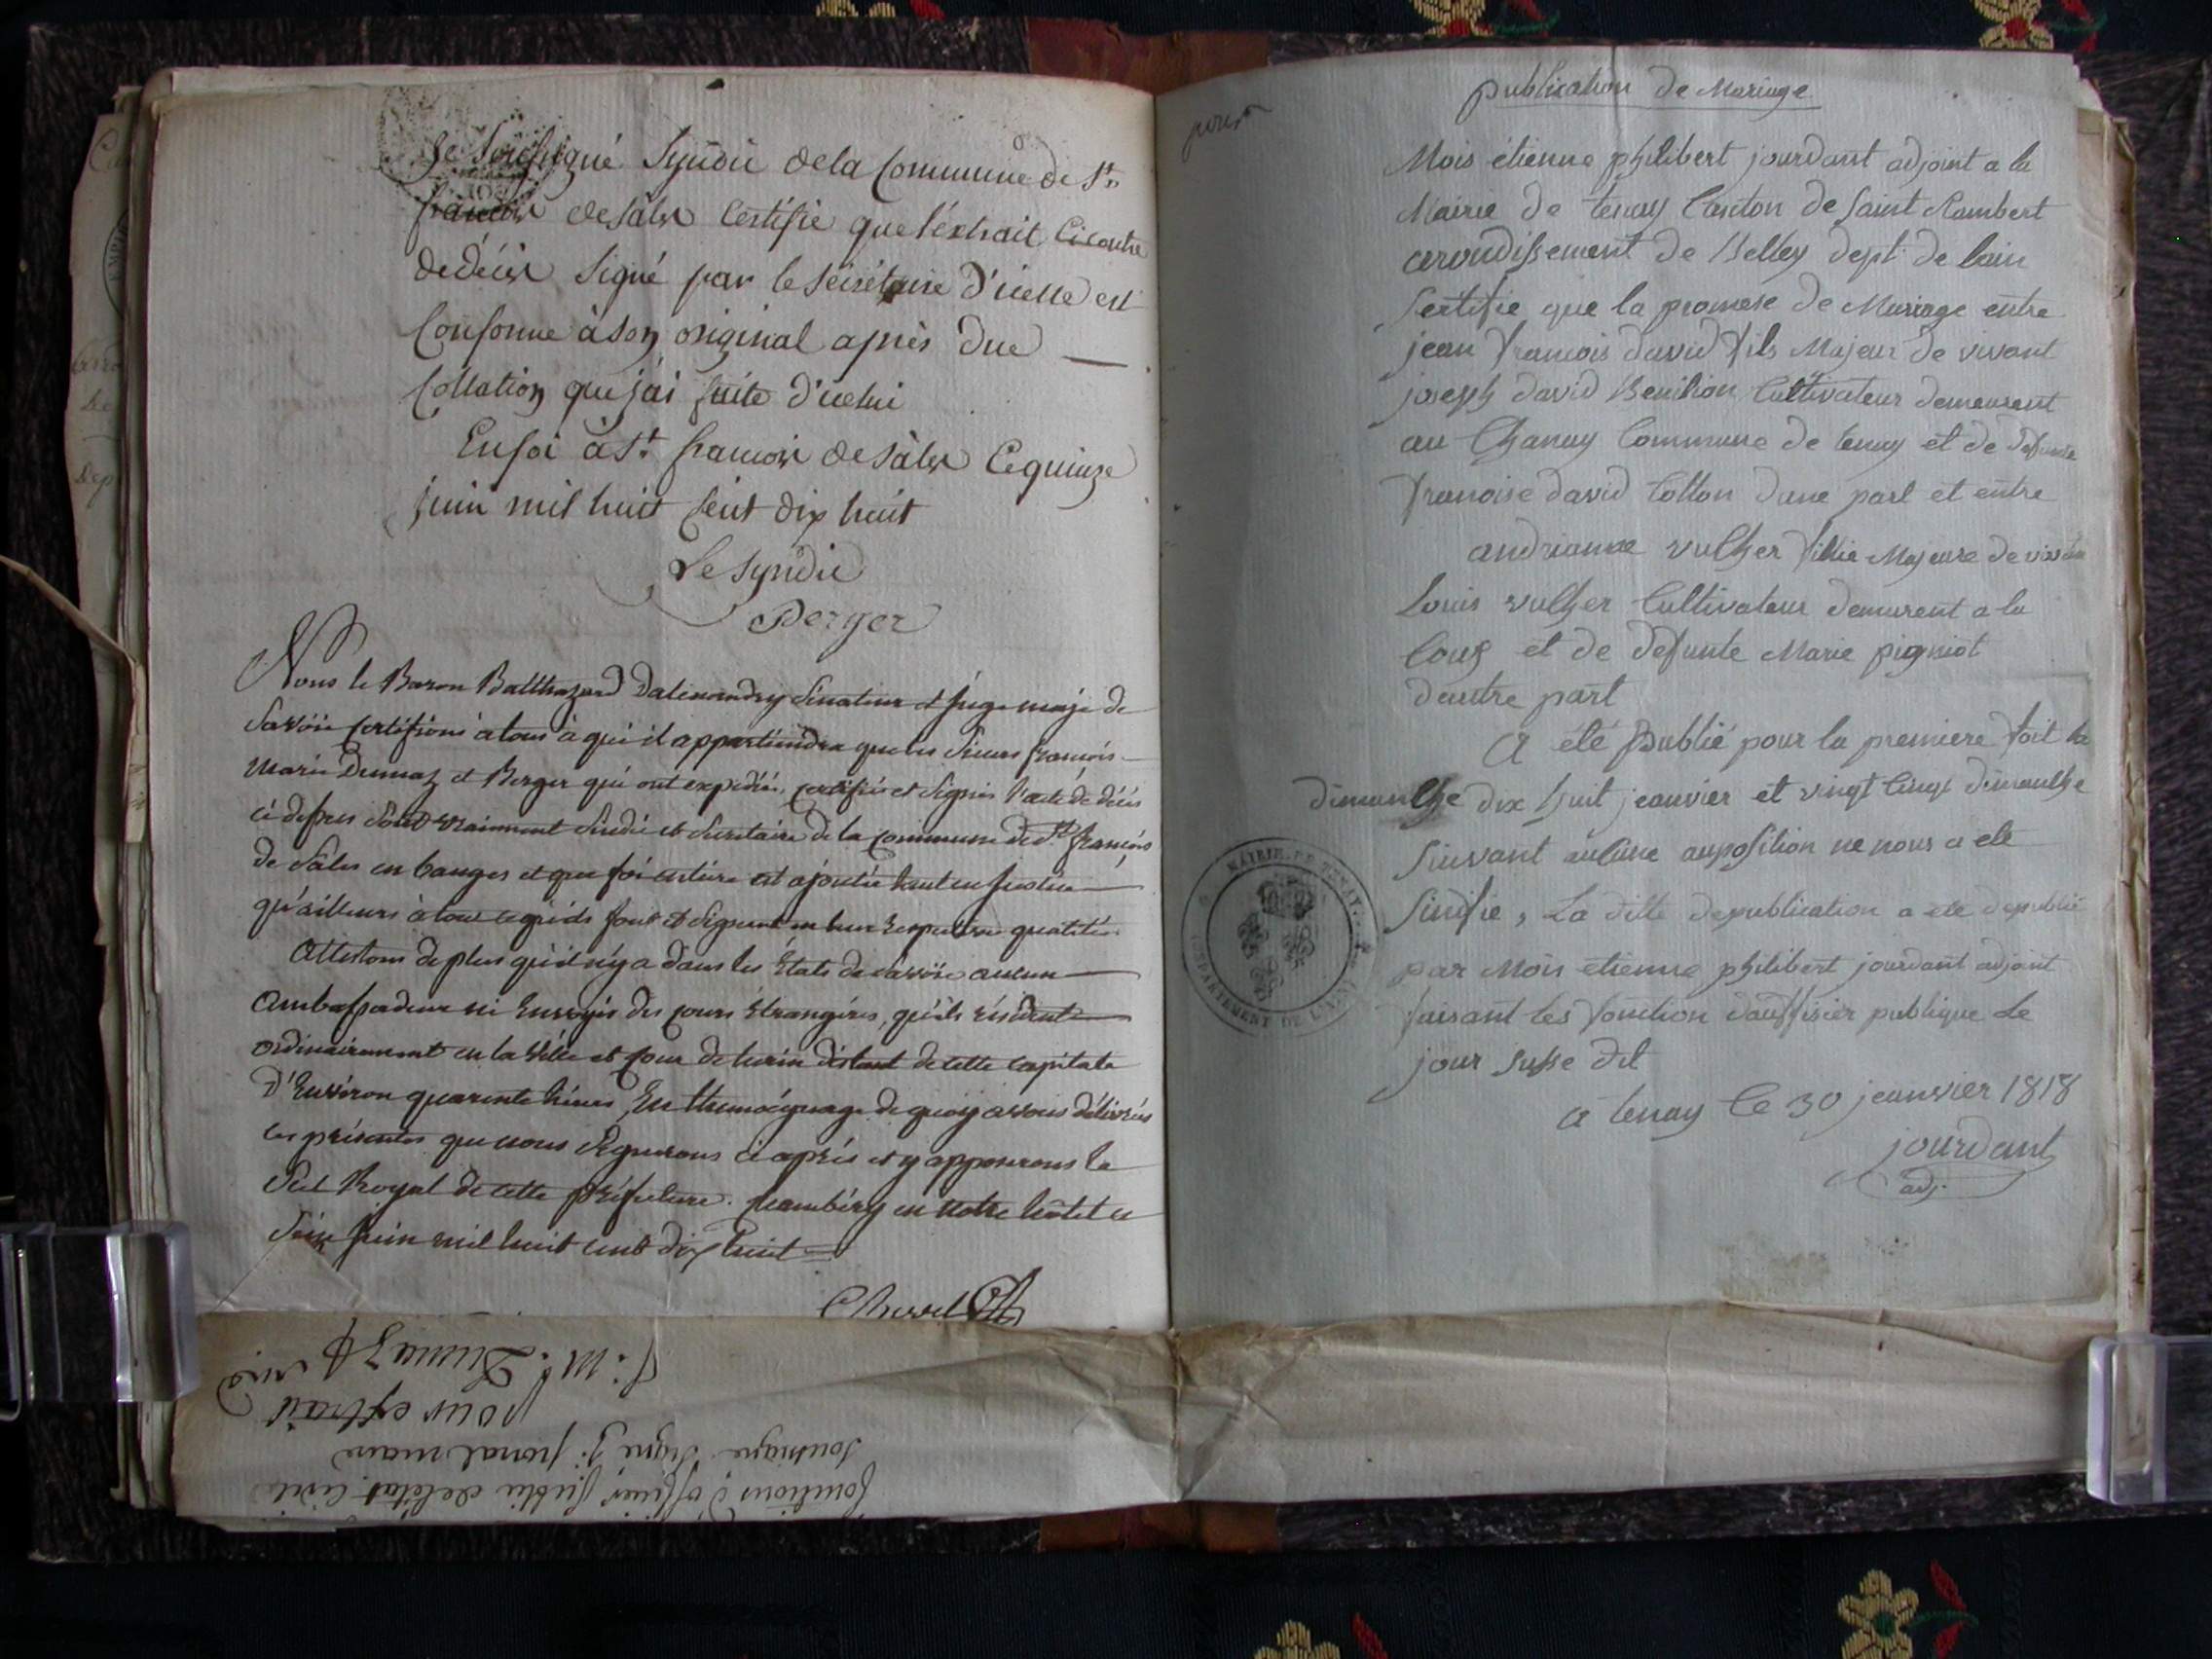 Je soussigné Syndic de la Commune de St
francois de Sales Certifie que l'éxtrait Ci contre
de décès Signé par le Sécrétaire d'icelle est
Conforme à son original après due
Collation que j'ai faite d'icelui
En foi à St françois de Sàles Ce quinze
juin mil huit Cent dix huit
Le Syndic
Berger
Nous le Baron Balthazard Dalexandry Sénateur & juge maje de
Savoïe certifions à tous à qui il appartiendra que les Sieurs françois
Marie Dumaz et Berger qui ont expédié, certifié et Signés l'acte de décès
ci dessus Sont vraiment Sindic et Secrétaire de la commune de St. françois
de Sâles en bauges et que foi entière est ajoutée tant en justice
qu'ailleurs à tout ce qu'ils font et Signent en leur respective qualité.
Attestons de plus qu'il n'y a dans les États de Savoïe aucun
Ambassadeur ni Envoyés des cours étrangères, qu'ils résident
ordinairement en la Ville et Cour de turin distant de cette capitale
d'Environ quarante lieues, En thémoignage de quoy avons délivrés
les présentes que nous Signerons ci après et y apposerons le
Scel Royal de cette préfecture. chambéry en notre hôtel ce
Seize juin mil huit cent dix huit
fonctions d'officier public de l'état Civil
soussigné Signé j: monal maire
pour extrait
f: Me: Dumaz
pour
publication de Mariage
Mois étienne philibert jourdant adjoint a la
Mairie de tenay Canton de Saint Rambert
arondissement de Belley dept de lain
Sertifie que la promese de Mariage entre
jean francois david fils Majeur de vivant
joseph david Benition Cultivateur demeurent
au Chanay Commune de tenay et de defunte
francoise david Cotton dune part et entre
andrianne vulher fillie Majeure de vivan
Louis vulher Cultivateur demurent a la
Coux et de defunte Marie pigniot
dautre part
A été publié pour la premiere foit le
dimanche dix huit jeanvier et vingt cinq dimanlhe
suivant aucune auposition ne nous a ete
Sinifie, La ditte depublication a ete depublié
par Mois etienne philibert jourdant adjoint
faisant les fonition dauffisier publique le
jour susse dit
a tenay le 30 jeanvier 1818
jourdant
adj.
MAIRIE DE TENAY
DÉPARTEMENT DE L'AIN